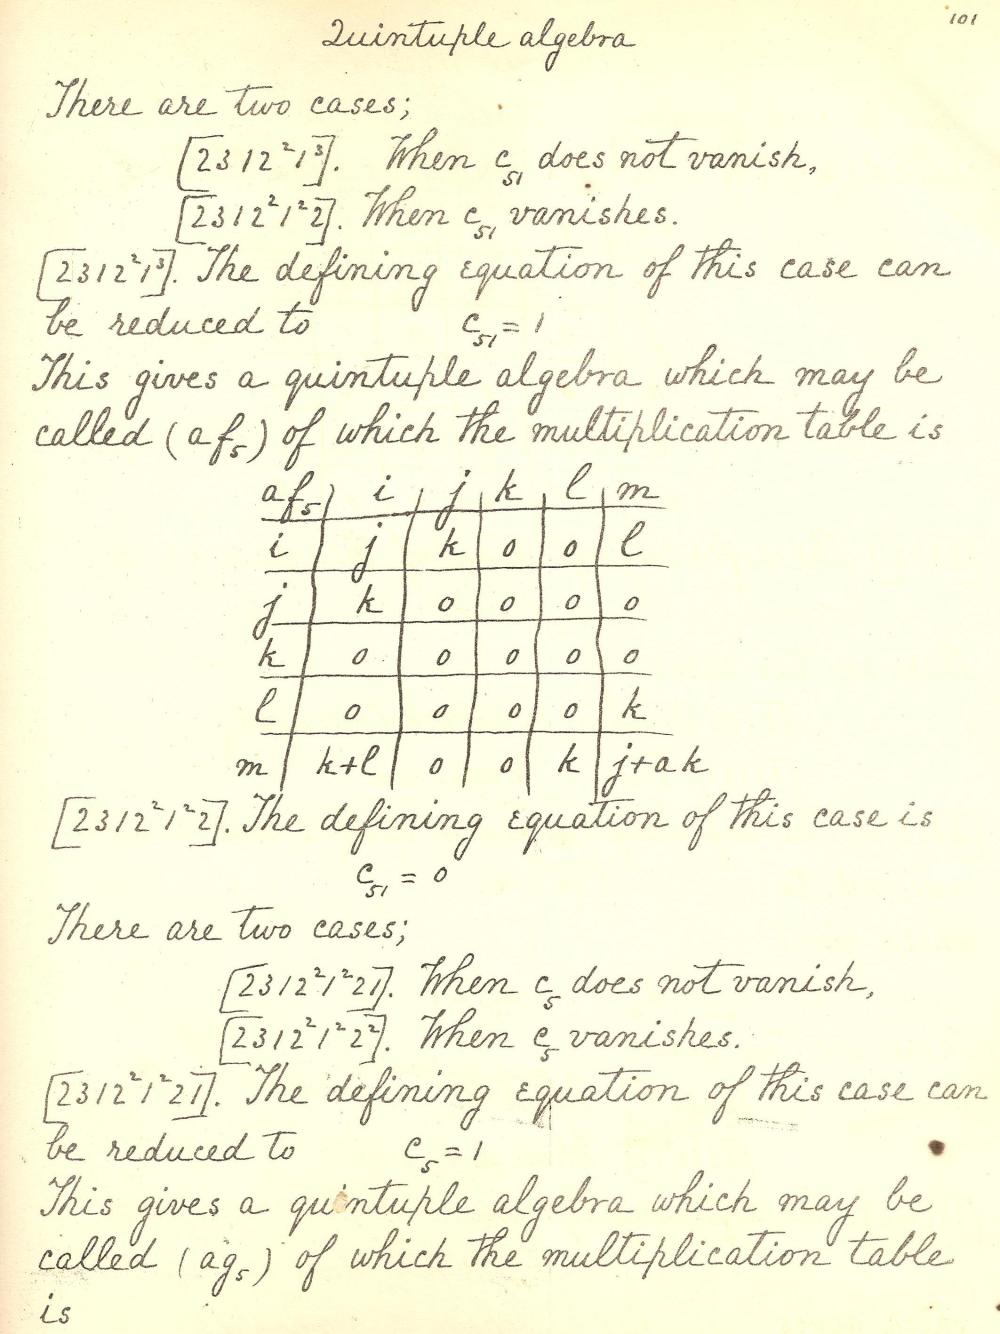 101
Quintuple algebra
There are two cases;
[2312²1³]. When c₅₁ does not vanish,
[2312²1²2]. When c₅₁ vanishes.
[2312²1³]. The defining equation of this case can
be reduced to c₅₁ = 1
This gives a quintuple algebra which may be
called (af₅) of which the multiplication table is
af₅ i j k l m
i j k 0 0 l
j k 0 0 0 0
k 0 0 0 0 0
l 0 0 0 0 k
m k+l 0 0 k j+ak
[2312²1²2]. The defining equation of this case is
c₅₁ = 0
There are two cases;
[2312²1²21]. When c₅ does not vanish,
[2312²1²2²]. When c₅ vanishes.
[2312²1²21]. The defining equation of this case can
be reduced to c₅ = 1
This gives a quintuple algebra which may be
called (ag₅) of which the multiplication table
is